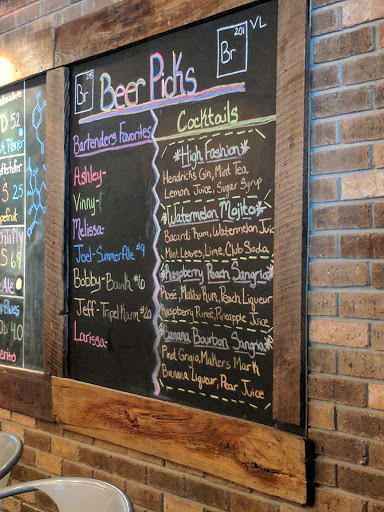 28
Br
201
Br
VL
Beer Picks
Bartenders Favorites
Ashley-
Vinny-
Melissa-
Joel-Summer Ale #9
Bobby-Baunk #6
Jeff-Tripel Karm #20
Larissa-
Cocktails
*High Fashion*
Hendricks Gin, Mint Tea
Lemon Juice, Sugar Syrup
*Watermelon Mojito*
Bacardi Rum, Watermelon Juic
Mint Leaves, Lime, Club Soda
*Raspberry Peach Sangria*
Rosé, Malibu Rum, Peach Liqueur
Raspberry Pureé, Pineapple Juice
*Banana Bourbon Sangria*
Pinot Grigio, Makers Mark
Banana Liqueur, Pear Juice
D 52
S 25
S 69
Ale
Do 40